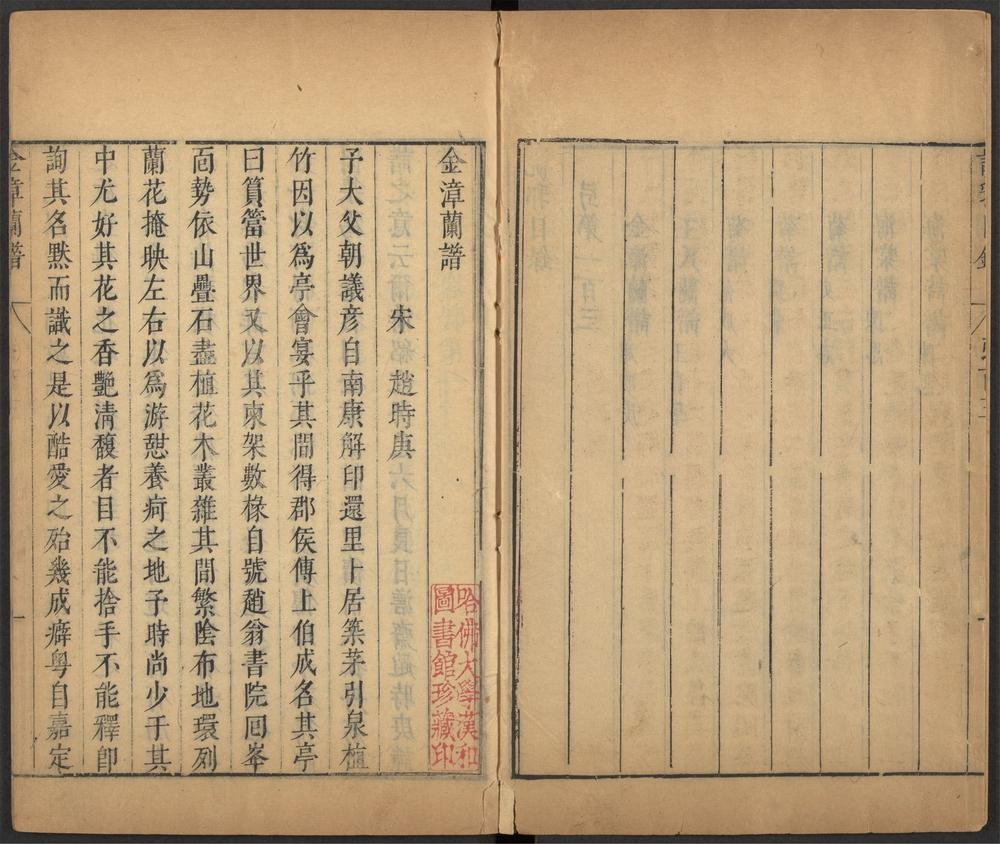 金漳蘭譜
宋 趙時庚
子大父朝議彦自南康解印還里卜居築茅引泉植
竹因以爲亭會宴乎其間得郡侯傅上伯成名其亭
曰篔簹世界又以其東架數椽自號趙翁書院囘峯
面勢依山疊石盡植花木叢雜其間繁陰布地環列
蘭花掩映左右以爲游憇養疴之地子時尚少于其
中尤好其花之香艷清馥者目不能捨手不能釋卽
詢其名黙而識之是以酷愛之殆幾成癖粤自嘉定
金漳蘭譜
一
哈佛大學漢和
圖書館珍藏印